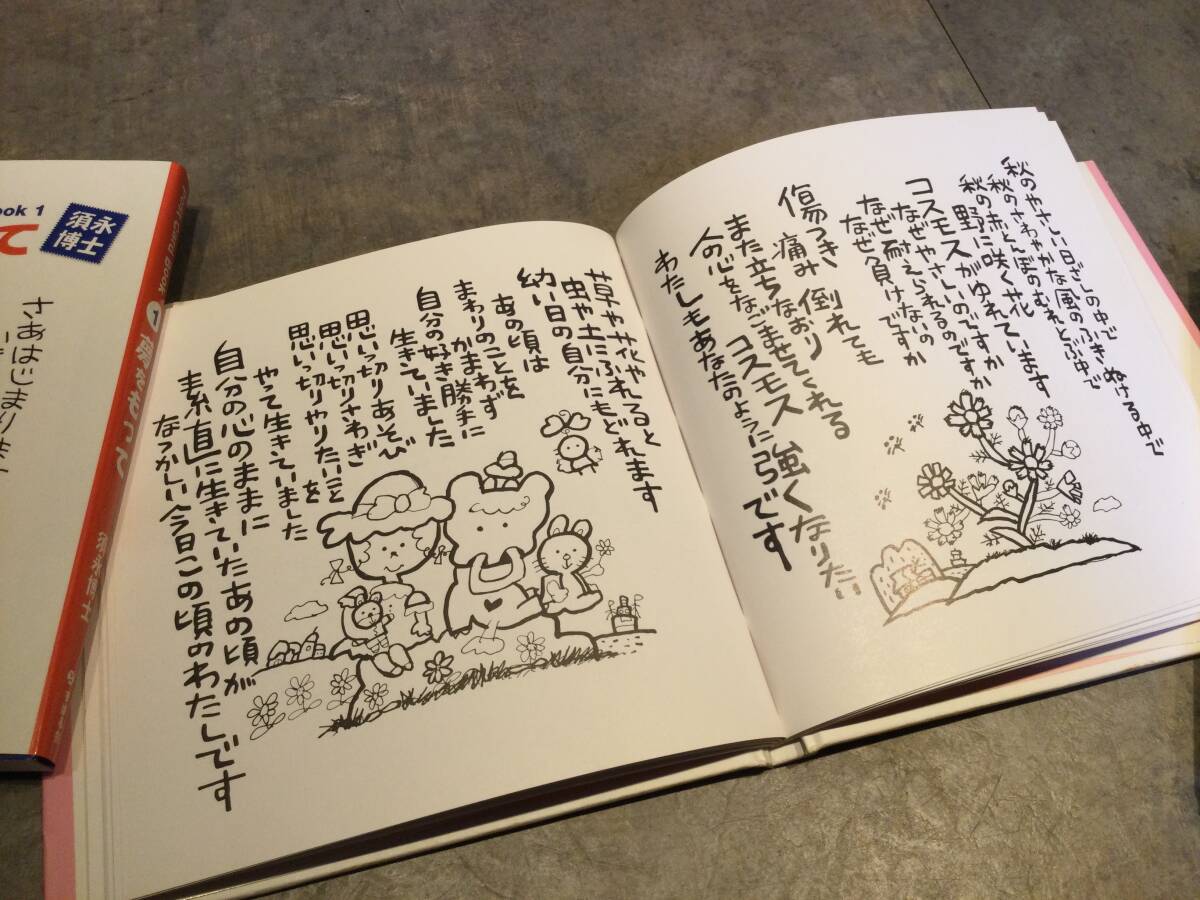 秋のやさしい日ざしの中で
秋のさわやかな風のふきぬける中で
秋の赤とんぼのむれとぶ中で
秋の野に咲く花
コスモスがゆれています
コスモスがゆれています
なぜやさしいのですか
なぜ耐えられるのですか
なぜ負けないの
なぜ負けですか
傷つき 倒れても
痛みなおり
また立ちなおり
人の心をなごませてくれる
コスモス 強くなりたい
わたしもあなたのように
弱いです
草や花やふれると
虫や土にふれると
幼い日の自分にもどれます
あの頃は
まわりのことを
かまわず
自分の好き勝手に
生きていました
思いっ切りあそび
思いっ切りさわぎ
思いっ切りやりたいことを
やって生きていました
自分の心のままに
素直に生きていたあの頃が
なつかしい今日この頃のわたしです
ook 1
て
須永
博士
さあはじまりま
POST CARD BOOK 1
須永博士